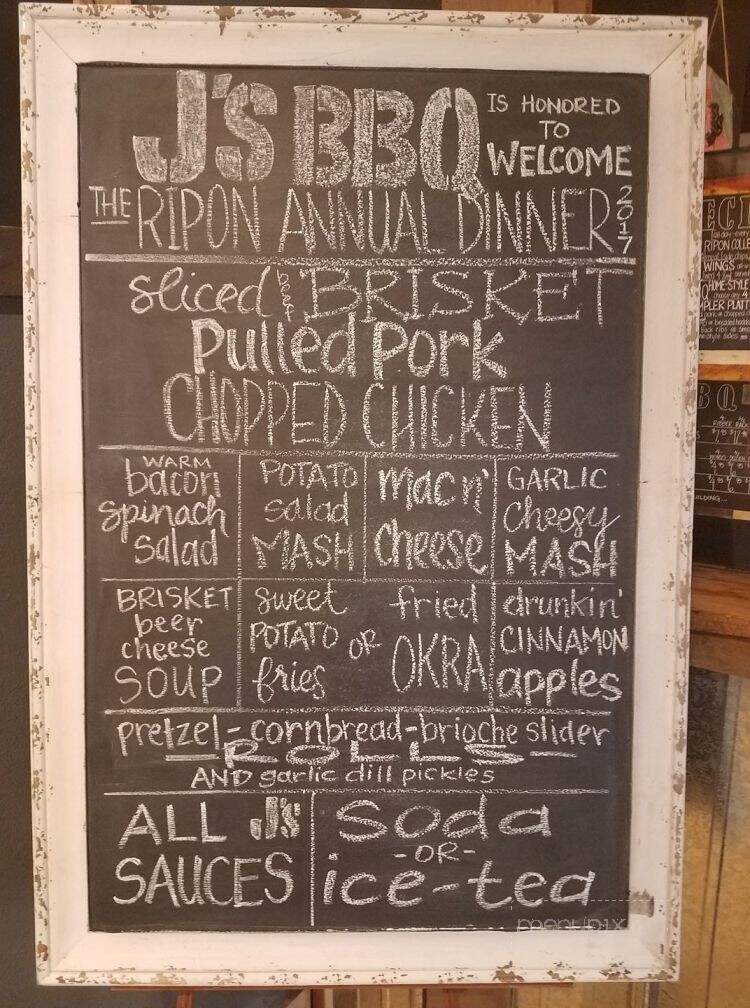 J's BBQ IS HONORED
TO
WELCOME
THE RIPON ANNUAL DINNER 2017
sliced beef BRISKET
Pulled Pork
CHOPPED CHICKEN
WARM
bacon
spinach
salad
POTATO
salad
MASH
mac n'
cheese
GARLIC
Cheesy
MASH
BRISKET
beer
cheese
SOUP
sweet
POTATO
fries
OR
fried
OKRA
drunkin'
CINNAMON
apples
pretzel-cornbread-brioche slider
-ROLLS-
AND garlic dill pickles
ALL J's
SAUCES
soda
-OR-
ice-tea
menupix
RIPON COLLE
WINGS
HOME-STYLE
PLER PLATT